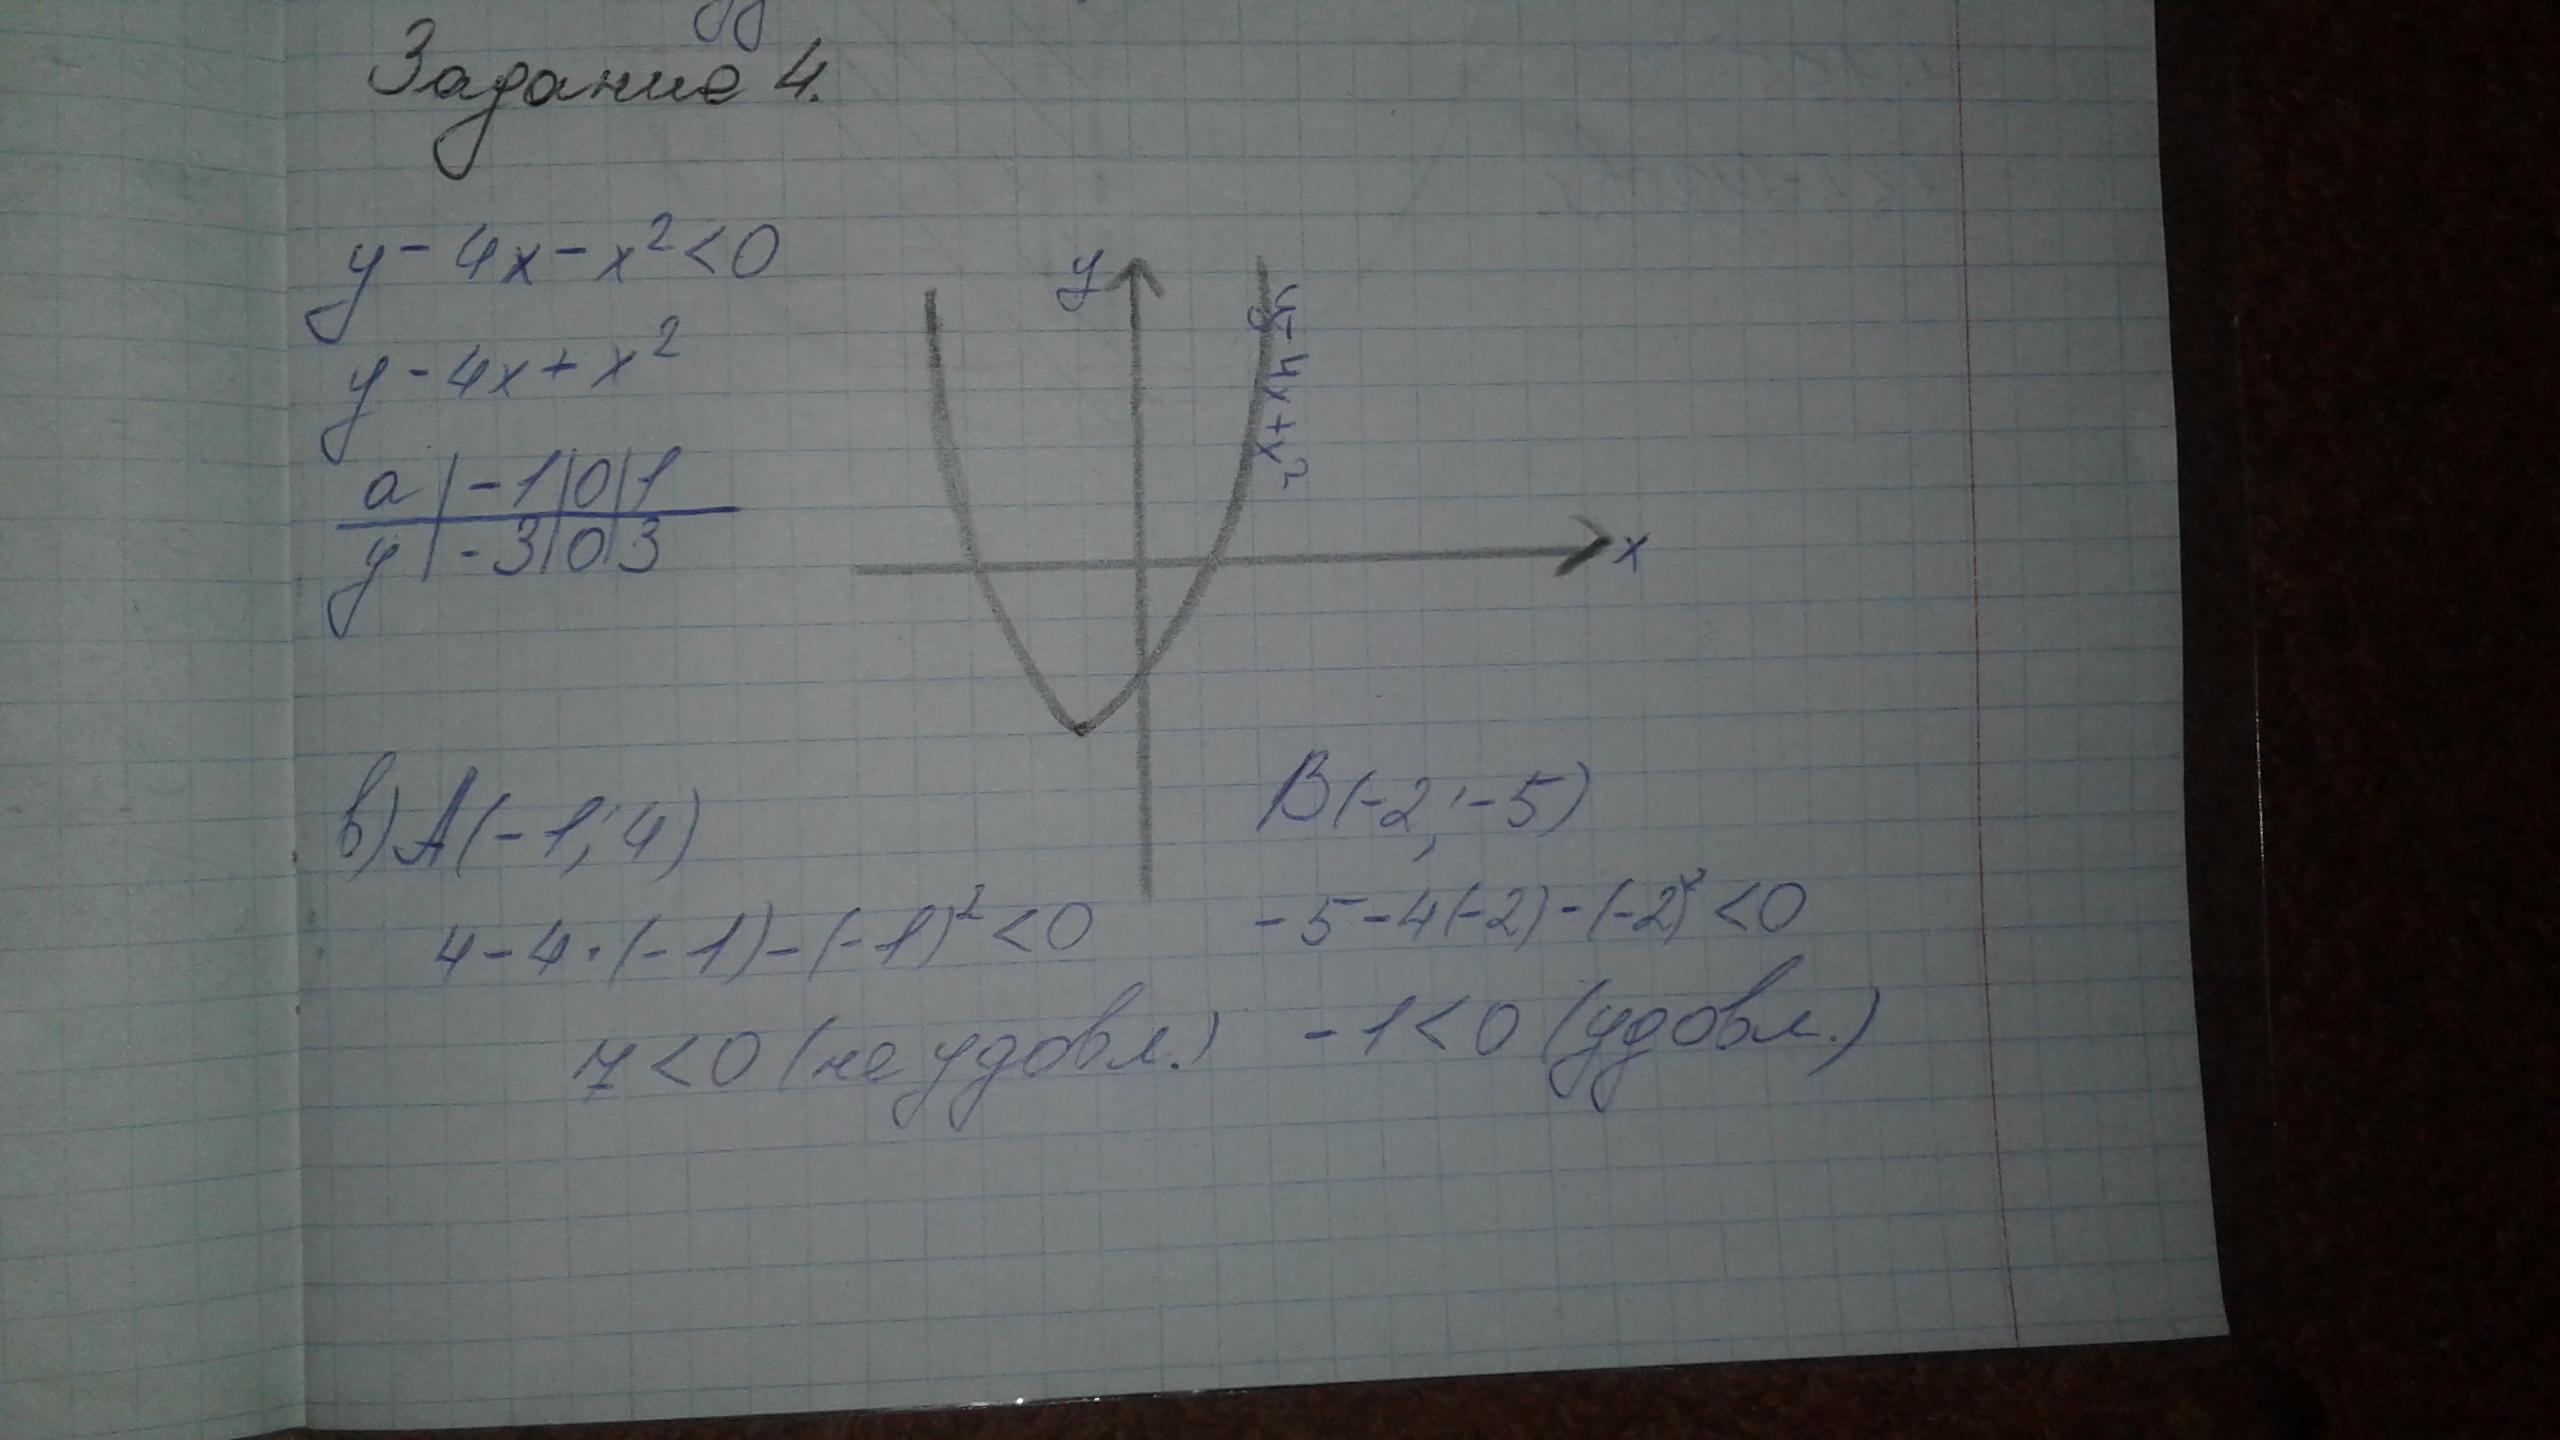 Задание 4.
y - 4x - x² < 0
y - 4x + x²
a | -1 | 0 | 1
y | -3 | 0 | 3
y
y - 4x + x²
x
в) A(-1; 4)
4 - 4 · (-1) - (-1)² < 0
7 < 0 (не удовл.)
B(-2; -5)
-5 - 4(-2) - (-2)² < 0
-1 < 0 (удовл.)